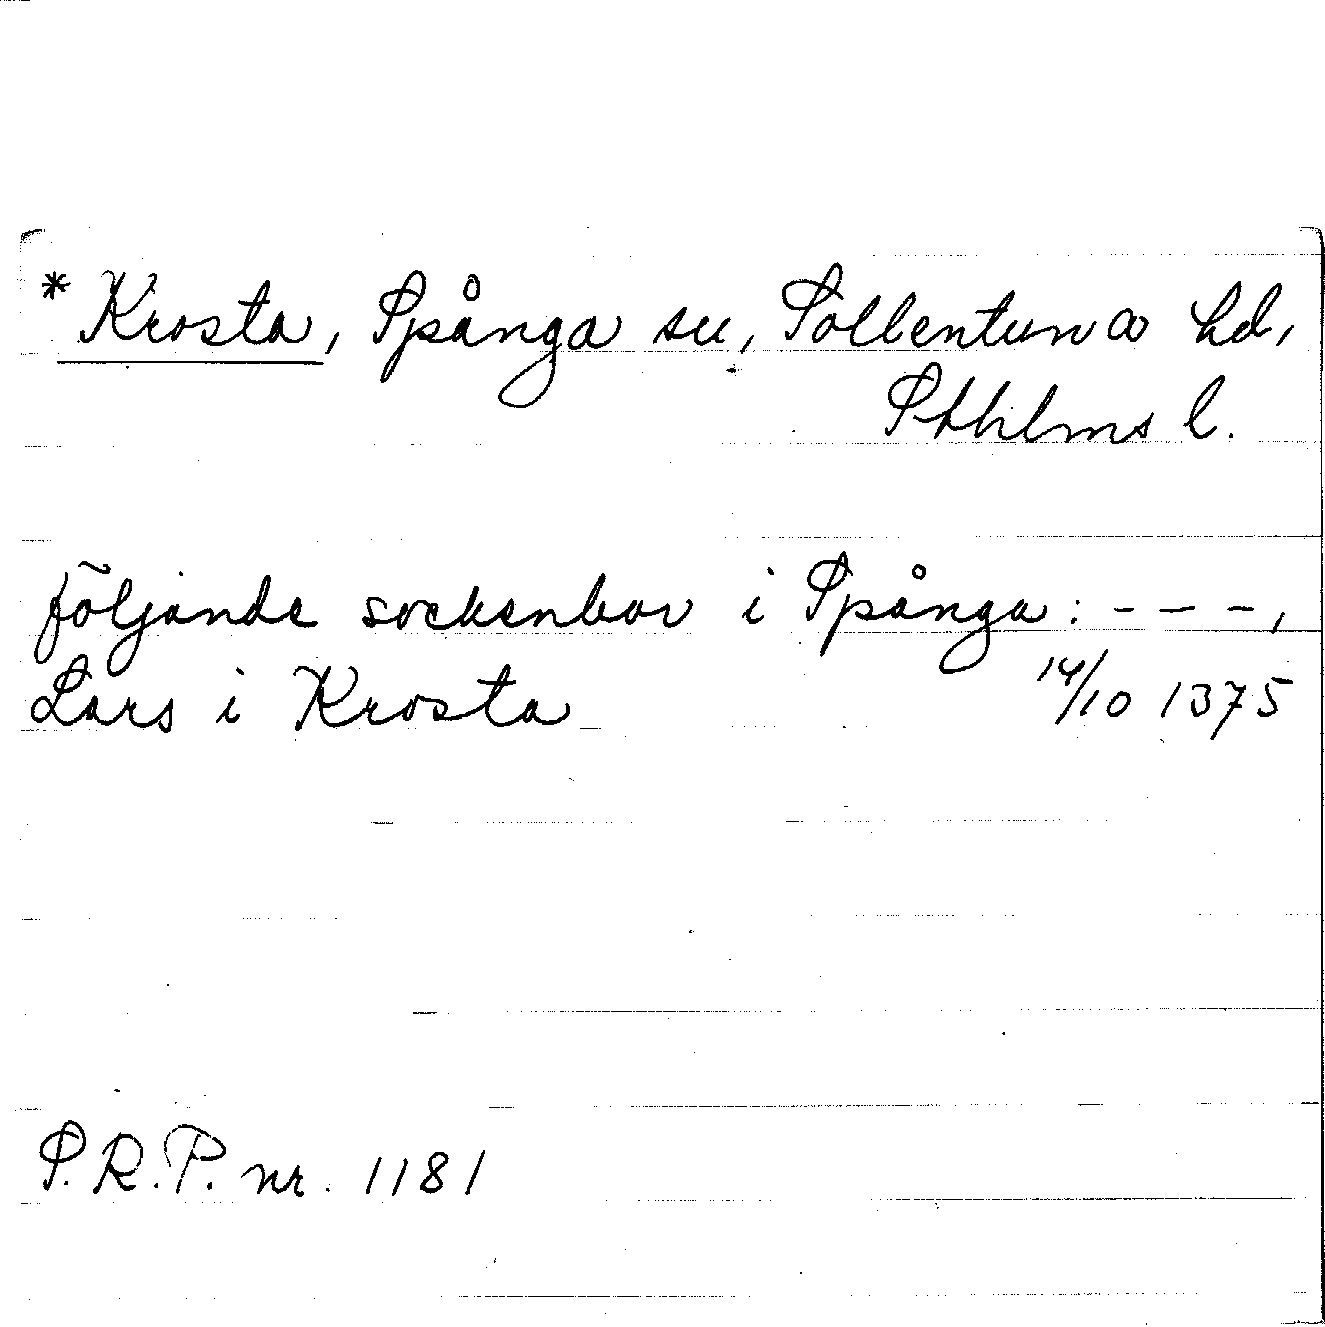 * Krosta, Spånga sn, Sollentuna hd,
Sthlms l.
följande sockenbor i Spånga: - - -,
Lars i Krosta 14/10 1375
S.R.P. nr. 1181